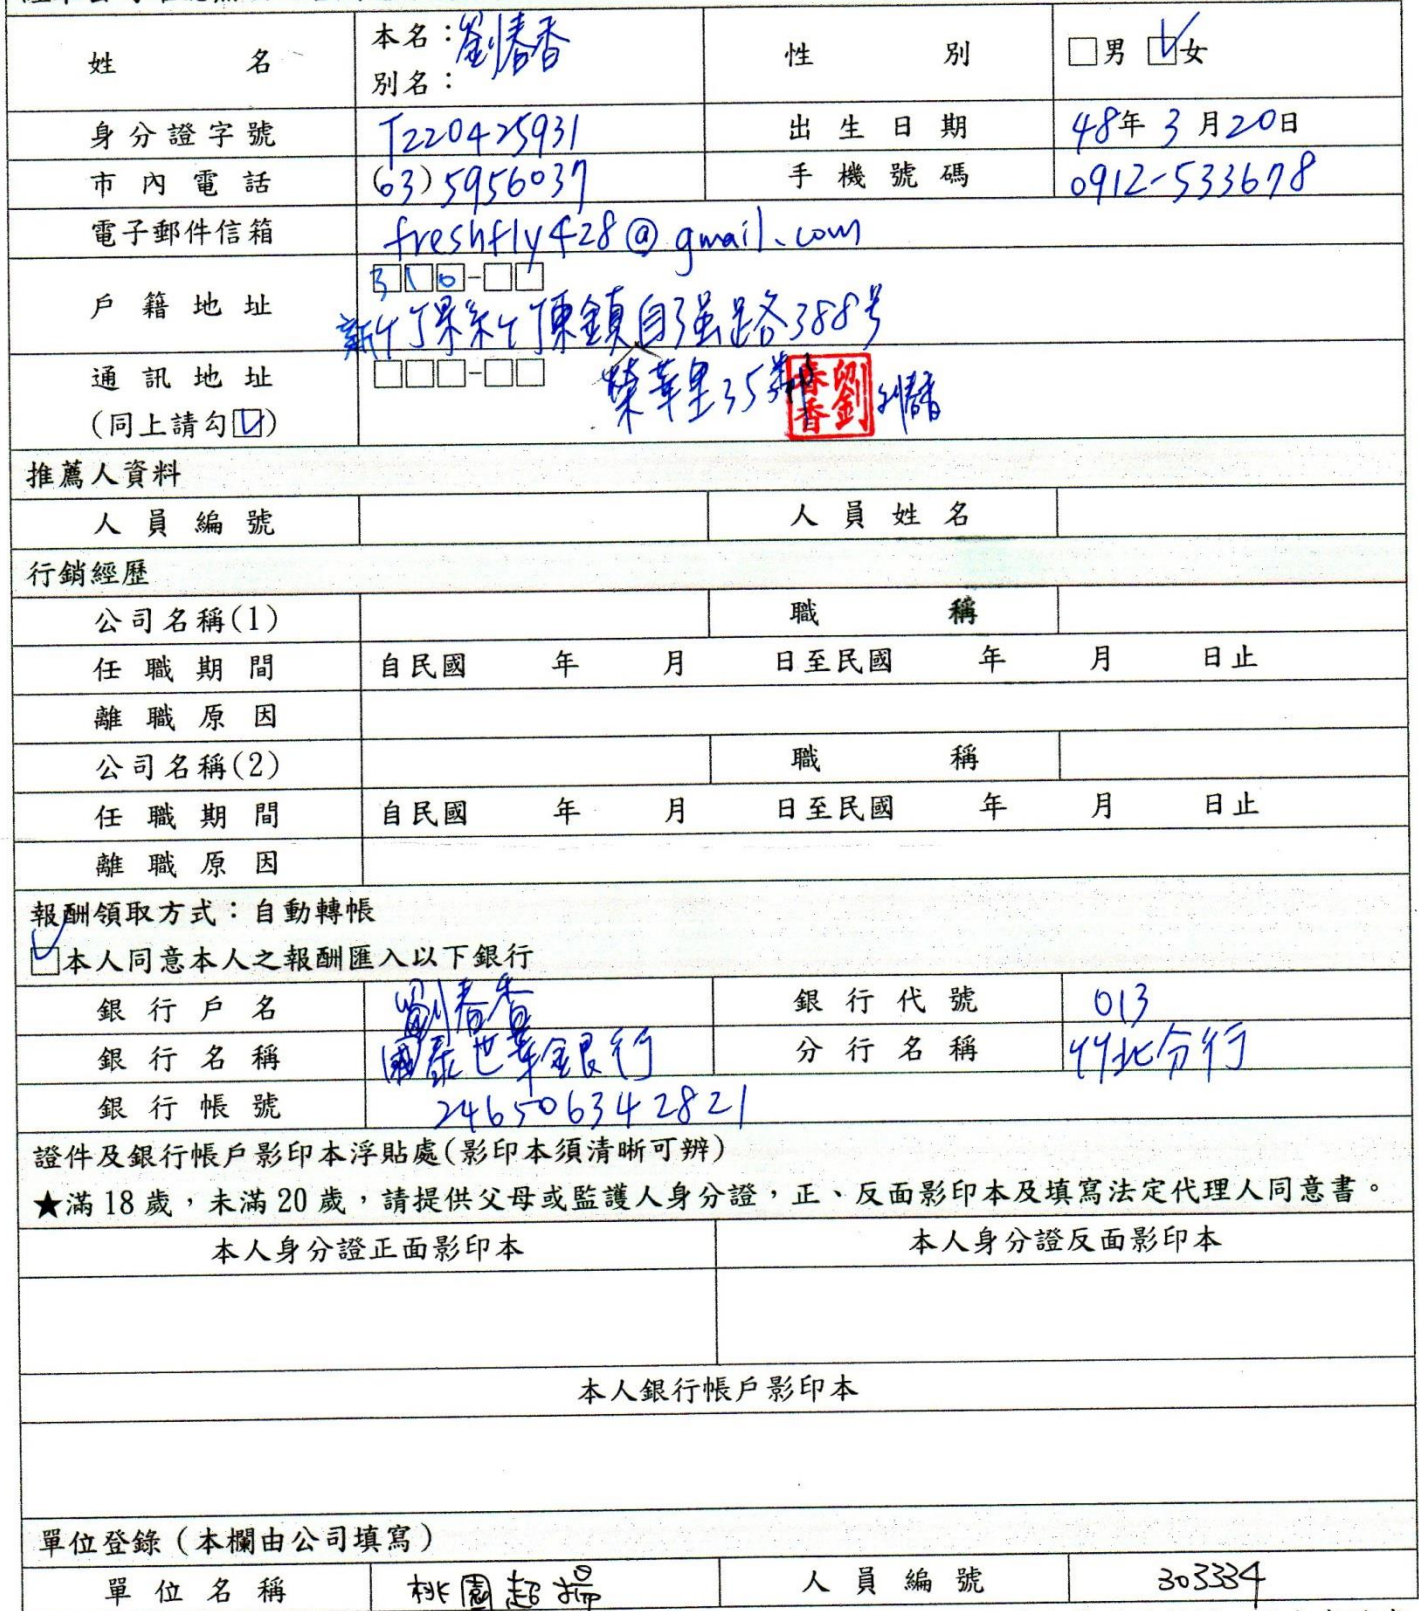 姓名 本名：劉春香 性別 □男 ☑女
別名：
身分證字號 T220425931 出生日期 48年3月20日
市內電話 (03)5956037 手機號碼 0912-533678
電子郵件信箱 freshfly428@gmail.com
戶籍地址 310-□□
新竹縣竹東鎮自強路388号
榮華里35鄰
通訊地址 □□□-□□
(同上請勾☑) 劉春香 劉春香
推薦人資料
人員編號 人員姓名
行銷經歷
公司名稱(1) 職稱
任職期間 自民國 年 月 日至民國 年 月 日止
離職原因
公司名稱(2) 職稱
任職期間 自民國 年 月 日至民國 年 月 日止
離職原因
報酬領取方式：自動轉帳
☑本人同意本人之報酬匯入以下銀行
銀行戶名 劉春香 銀行代號 013
銀行名稱 國泰世華銀行 分行名稱 竹北分行
銀行帳號 246506342821
證件及銀行帳戶影印本浮貼處(影印本須清晰可辨)
★滿18歲，未滿20歲，請提供父母或監護人身分證，正、反面影印本及填寫法定代理人同意書。
本人身分證正面影印本 本人身分證反面影印本
本人銀行帳戶影印本
單位登錄（本欄由公司填寫）
單位名稱 桃園超 人員編號 303334